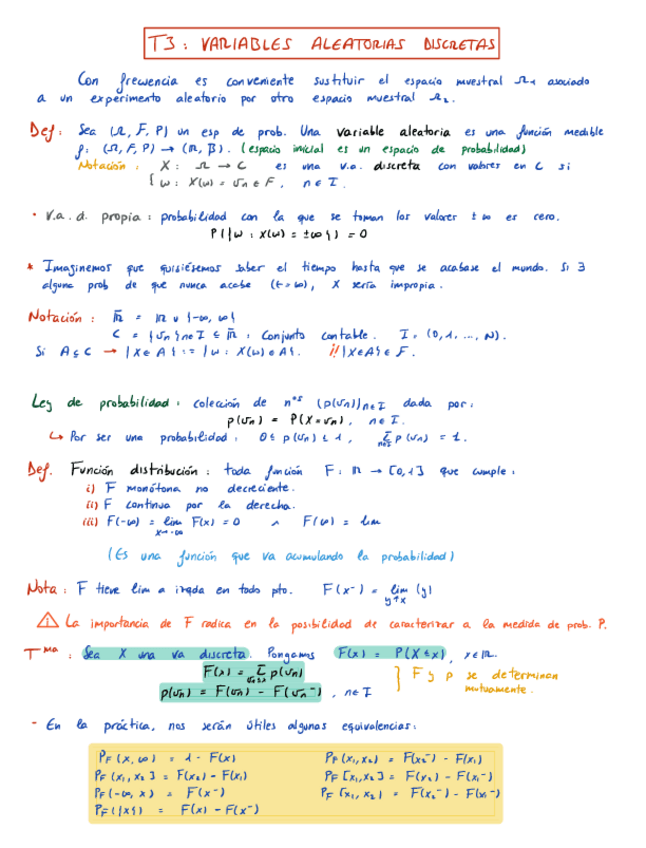 T3: VARIABLES ALEATORIAS DISCRETAS
Con frecuencia es conveniente sustituir el espacio muestral Ω₁ asociado
a un experimento aleatorio por otro espacio muestral Ω₂.
Def: Sea (Ω, F, P) un esp de prob. Una variable aleatoria es una función medible
f: (Ω, F, P) → (ℝ, β). (espacio inicial es un espacio de probabilidad)
Notación: X: Ω → C es una v.a. discreta con valores en C si
{ω: X(ω) = vₙ ∈ F, n ∈ I.
· V.a.d. propia: probabilidad con la que se toman los valores ±∞ es cero.
P({ω: X(ω) = ±∞}) = 0
* Imaginemos que quisiésemos saber el tiempo hasta que se acabase el mundo. Si ∃
alguna prob de que nunca acabe (t=∞), X sería impropia.
Notación: ℝ̄ = ℝ ∪ {-∞, ∞}
C = {vₙ}n∈I ⊆ ℝ̄, Conjunto contable. I = (0, 1, ..., N).
Si A ⊆ C → {X ∈ A} := {ω: X(ω) ∈ A}. ¡! {X∈A} ∈ F.
Ley de probabilidad: colección de nºˢ (p(vₙ))n∈I dada por:
p(vₙ) = P(X=vₙ), n ∈ I.
↳ Por ser una probabilidad: 0 ≤ p(vₙ) ≤ 1, Σn∈I p(vₙ) = 1.
Def. Función distribución: toda función F: ℝ → [0,1] que cumple:
i) F monótona no decreciente.
ii) F continua por la derecha.
iii) F(-∞) = lim x→-∞ F(x) = 0 ∧ F(∞) = lim
(Es una función que va acumulando la probabilidad)
Nota: F tiene lim a izqda en todo pto. F(x⁻) = lim y↑x (y)
⚠ La importancia de F radica en la posibilidad de caracterizar a la medida de prob. P.
Tᵐᵃ: Sea X una va discreta. Pongamos F(x) = P(X ≤ x), x∈ℝ.
F(x) = Σvₙ≤x p(vₙ)
p(vₙ) = F(vₙ) - F(vₙ⁻), n∈I } F y p se determinan
mutuamente.
- En la práctica, nos serán útiles algunas equivalencias:
P_F (x, ∞) = 1 - F(x) P_F (x₁, x₂) = F(x₂⁻) - F(x₁)
P_F (x₁, x₂] = F(x₂) - F(x₁) P_F [x₁, x₂] = F(x₂) - F(x₁⁻)
P_F (-∞, x) = F(x⁻) P_F [x₁, x₂) = F(x₂⁻) - F(x₁⁻)
P_F ({x}) = F(x) - F(x⁻)